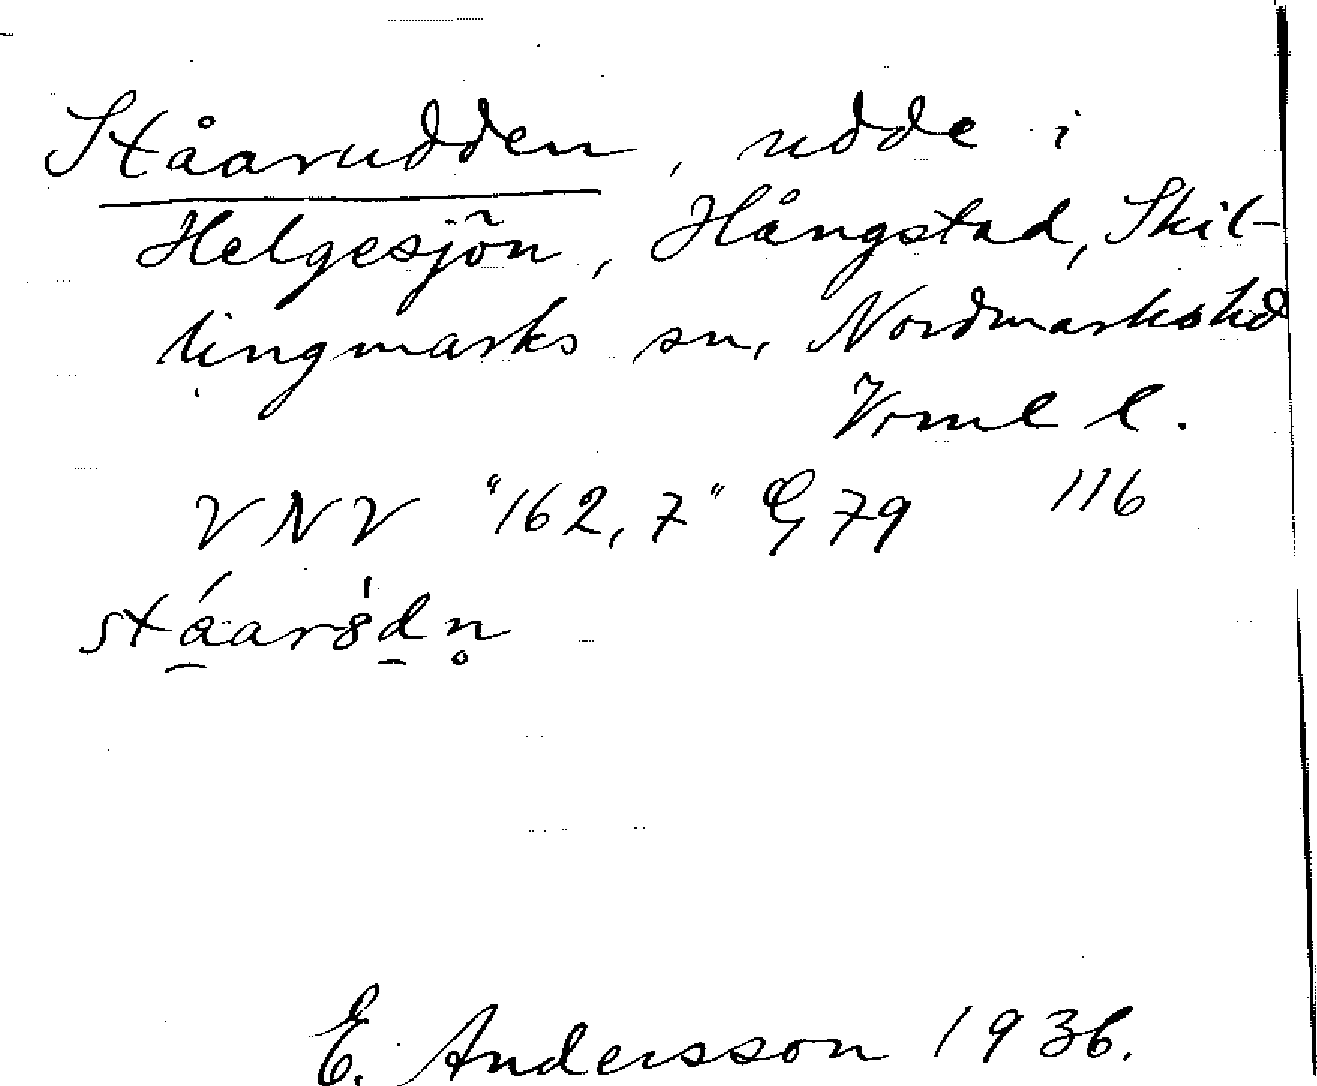 Ståarudden, udde i
Helgesjön, Hångstad, Skil-
lingmarks sn, Nordmarks hd
Vrml l.
VNV "162,7" G 79 116
E. Andersson 1936.